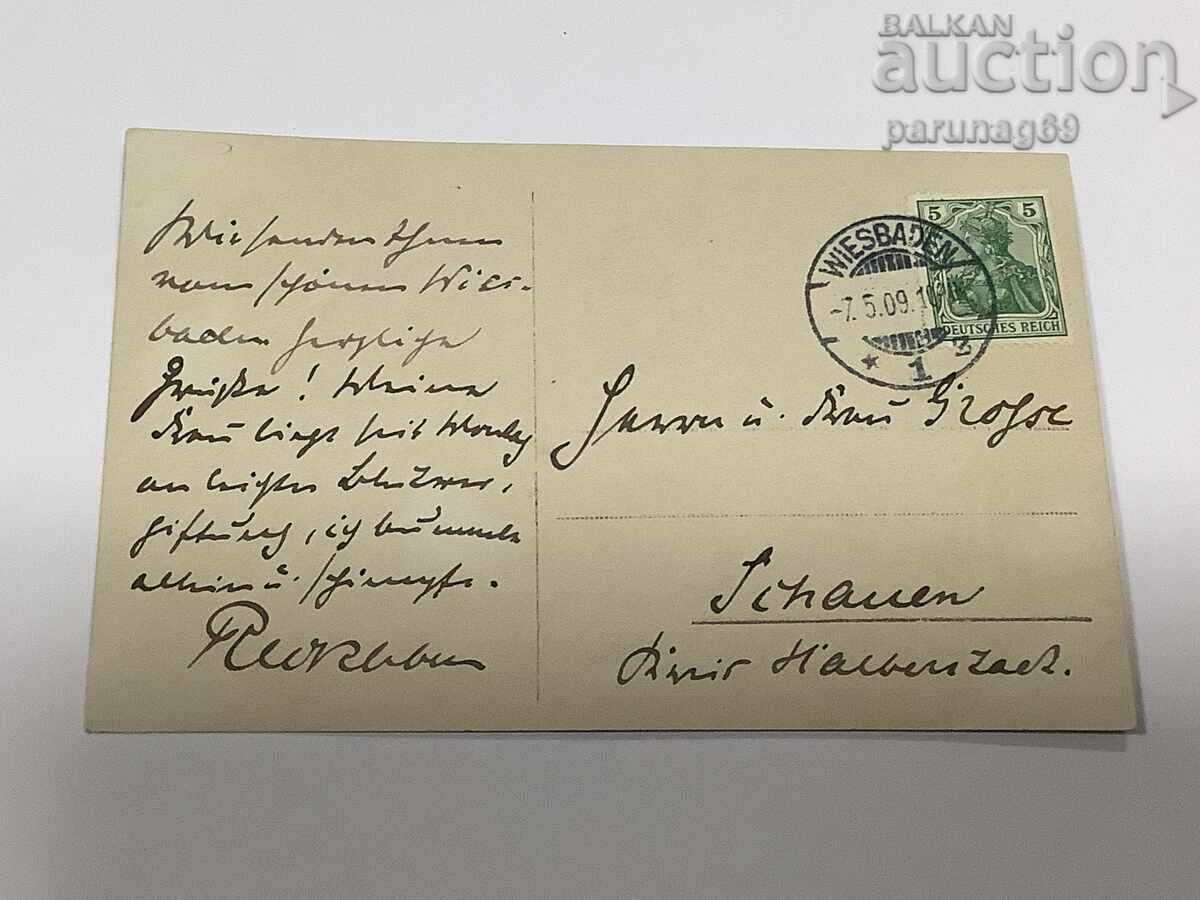 BALKAN
auction
parunag69
Wir senden Ihnen
vom schönen Wies-
baden herzliche
Grüße! Meine
Frau liegt seit Montag
an leichter Blutver-
giftung, ich bummle
allein u. schimpfe.
5 5
DEUTSCHES REICH
WIESBADEN
-7.5.09.10
* 1 3
Herrn u. Frau Grosse
Schauen
Kreis Halberstadt.